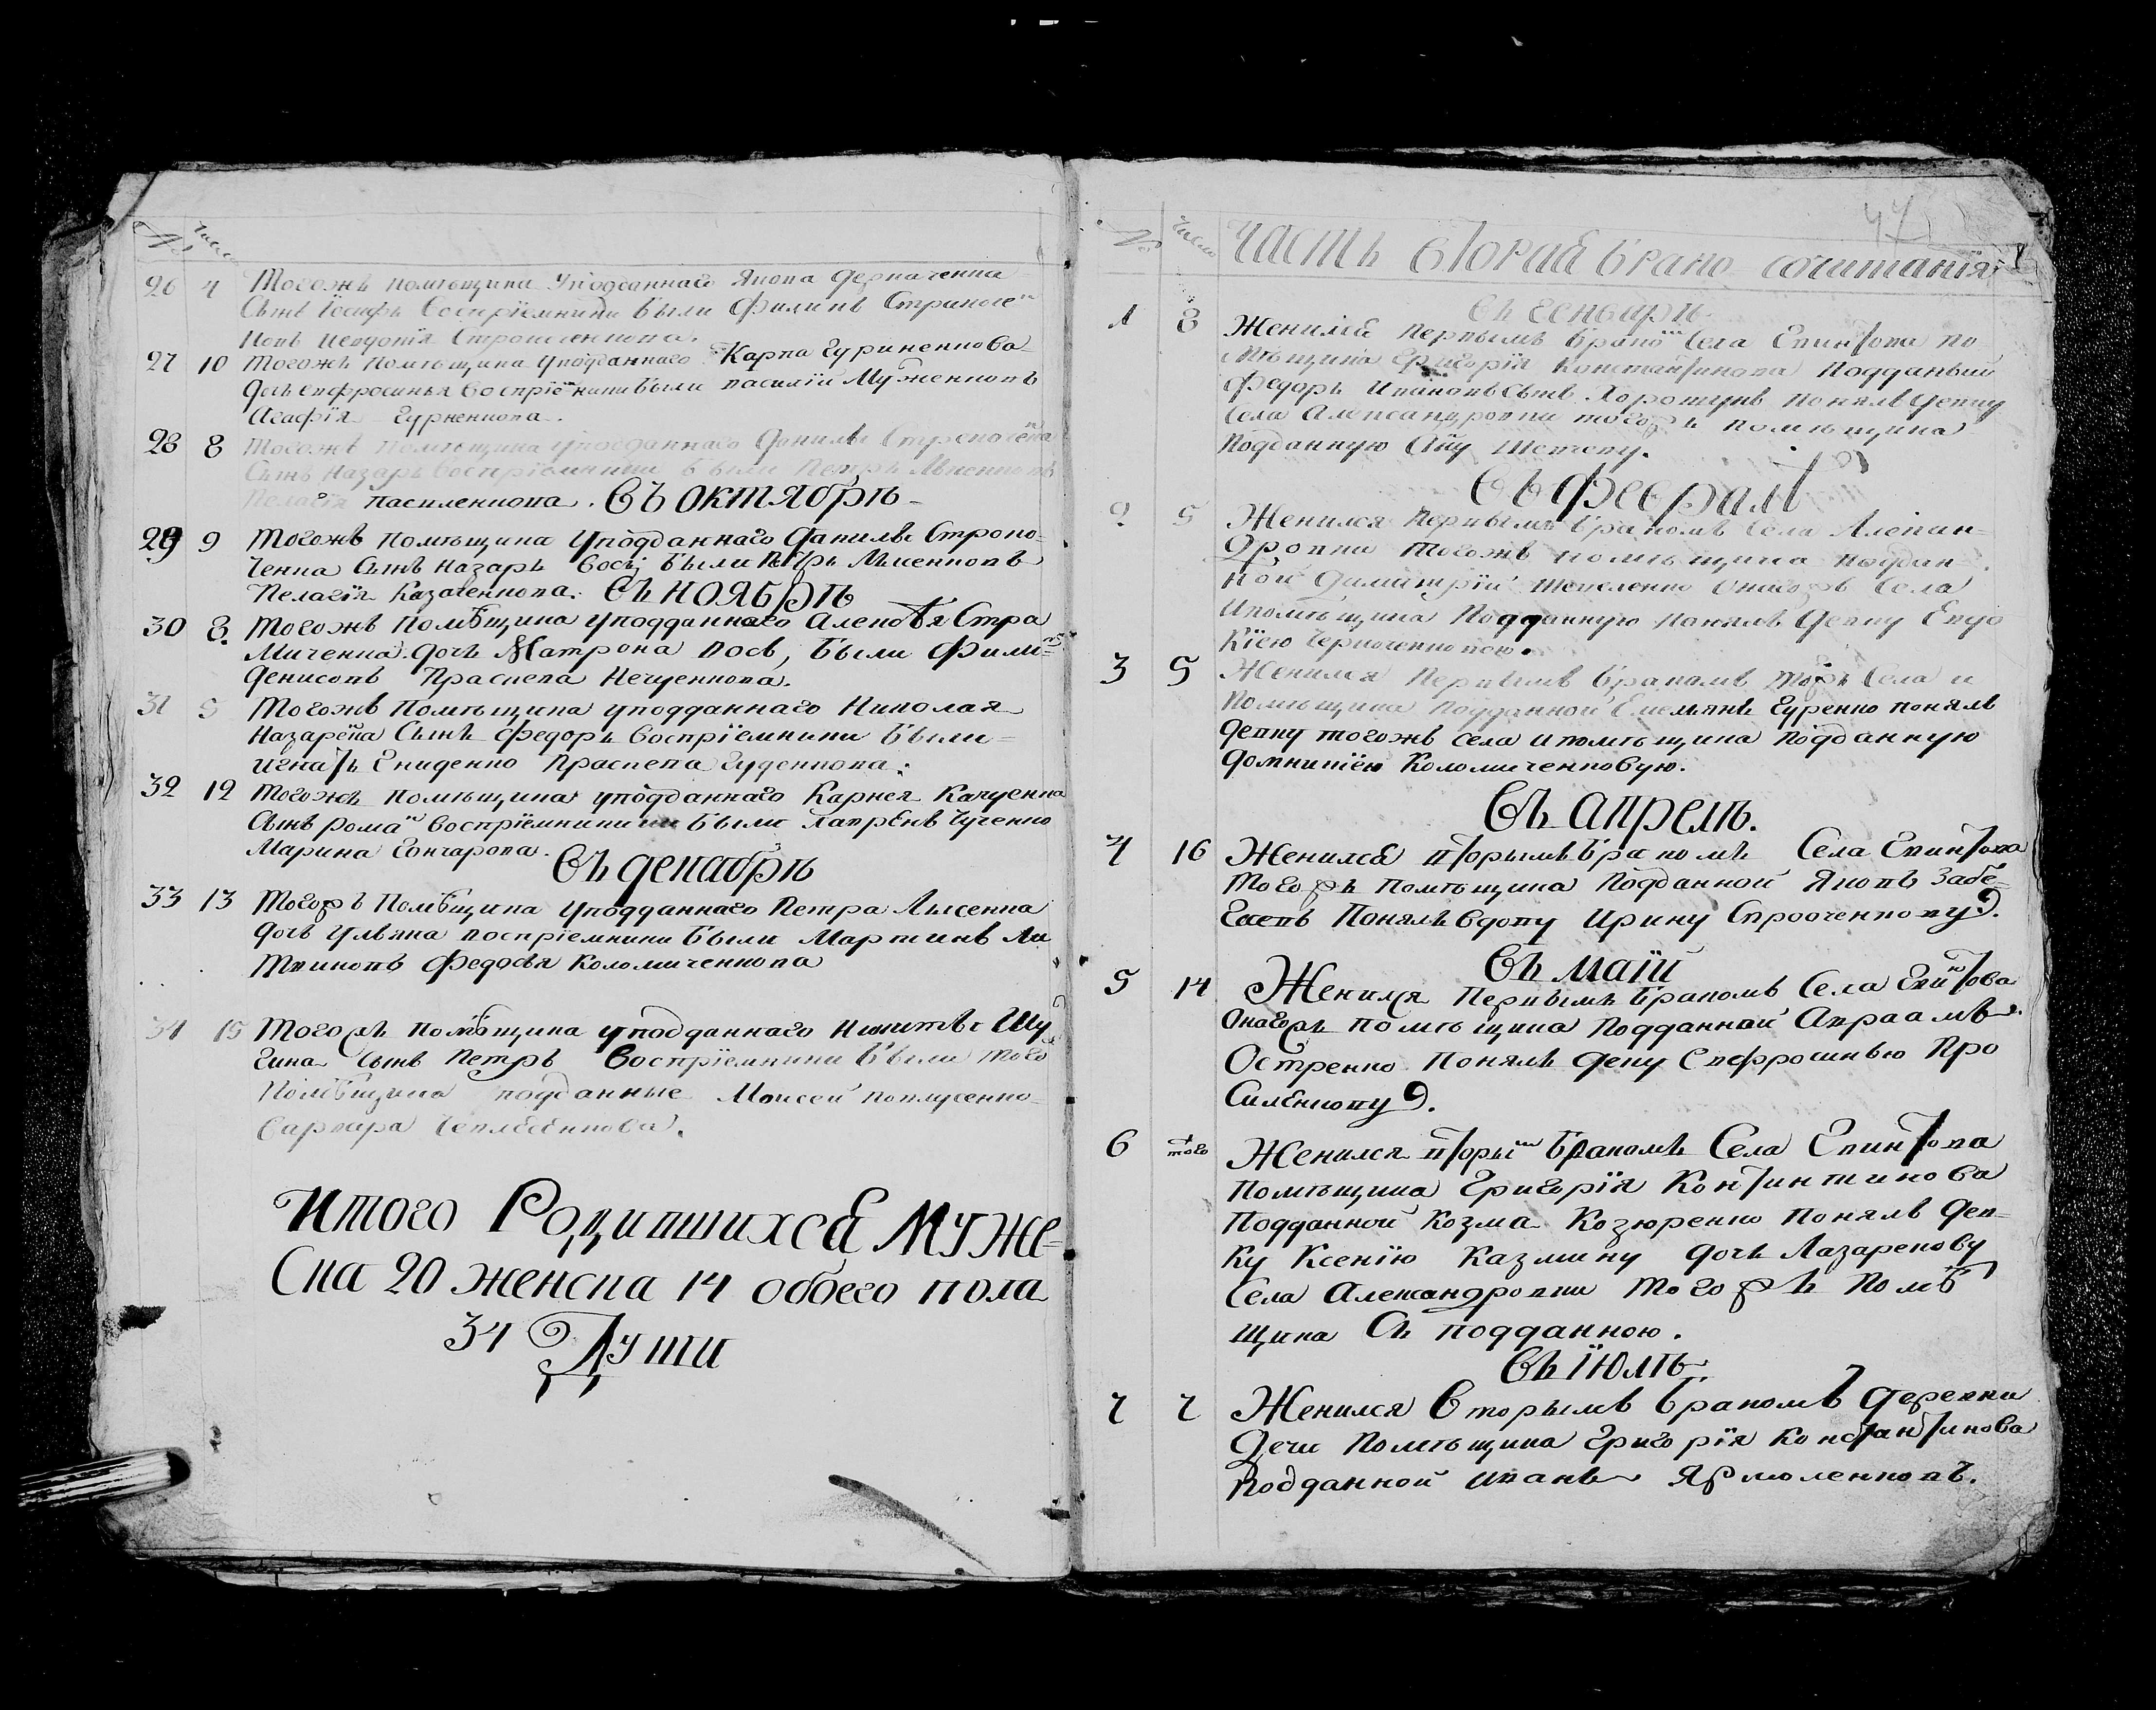 № Число
26 4 Тогожъ помѣщика уподданнаго Якова Деркаченка
Сынъ Іосифъ Воспріемники были Филипъ
27 10 Тогожъ помѣщика уподданнаго Карпа Гуриненкова
дочь Евфросинья Воспріемники были василій Муженковъ
Агафія Гурненкова.
28 8 Тогожъ помѣщика уподданнаго Данилы
Сынъ Назаръ воспріемники были Петръ Лысенковъ
Пелагія василенкова. Въ октябрѣ
29 9 Тогожъ помѣщика уподданнаго Данилы Строко
ченка Сынъ назаръ Вось; были Петръ Лысенковъ
Пелагія Казаченкова. Въ ноябрѣ
30 8. Тогожъ помѣщика уподданнаго Алексѣя Стра
миченка дочь Матрона вось, были Фили
Денисовъ Праскева Нечуенкова.
31 5 Тогожъ помѣщика уподданнаго Николая
Назарена Сынъ Федоръ воспріемники были
игнатъ Ениденко Праскева Гуденкова:
32 12 тогожъ помѣщика уподданнаго Карнея Качуенка
Сынъ романъ воспріемники были лаврѣнъ Чученко
Марина Гончарова.
Въ декабрѣ
33 13 Тогожъ Помѣщика уподданнаго Петра Лысенка
дочь ульяна воспріемники были Мартинъ Ли
твиновъ Федосья Коломиченкова
34 15 Тогожъ помѣщика уподданнаго Никиты Шу
гика сынъ Петръ Воспріемники были того
помѣщика подданные Моисей
варвара
Итого Родившихся муже
ска 20 женска 14 обоего пола
34 Души
47
№ Число Часть вторая Брако сочитанія
Въ генварѣ
1 8 Женился первымъ бракомъ Села Еликтова по
мѣщика Григорія Константинова подданный
Федоръ Ивановъ сынъ Хорошунъ понялъ девку
Села Александровки тогожъ помѣщика
подданную Анну Шевчеву.
Въ феврали
2 5 Женился первымъ бракомъ Села Алексан
дровки тогожъ помѣщика поддан
ной Димитрій онагожъ села
ипомѣщика подданную понялъ девку Евдо
кіею
3 5 Женился первымъ бракомъ тогожъ Села и
помѣщика подданной Емельянъ Гуренко понялъ
девку тогожъ села ипомѣщика подданную
домникію Коломиченковую.
Въ апрелѣ.
4 16 Женился вторымъ бракомъ Села Еликтова
тогожъ помѣщика подданной Яковъ
понялъ вдову Ирину
Въ маіи
5 14 Женился первымъ бракомъ Села Еликтова
онагожъ помѣщика подданной Авраамъ
Остренко понялъ девку Евфросинью Про
силенкову.
6 того Женился вторымъ бракомъ Села Еликтова
помѣщика Григорія Константинова
подданной Козма Козюренко понялъ дев
ку Ксенію Казмину дочь Лазаренкову
Села Александровки тогожъ помѣ
щика съ подданною.
Въ іюлѣ.
7 7 Женился вторымъ бракомъ деревни
Дечи помѣщика Григорія Константинова
подданной иванъ Ярмоленковъ.